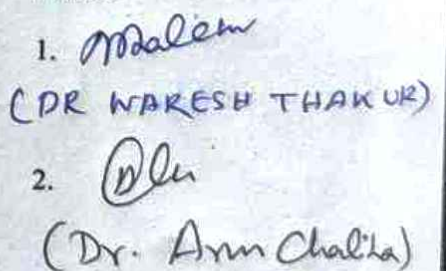 1.
(DR NARESH THAKUR)
2.
(Dr. Arun Chaliha)